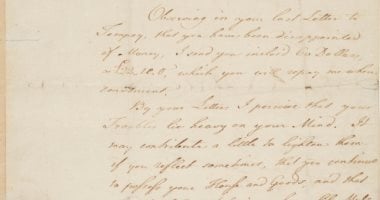 Observing in your last Letter to
that you have been disappointed
of Money, I send you inclos'd Six Dollars,
which you will repay me when
convenient.
By your Letters I perceive that your
Troubles lie heavy on your Mind. It
may contribute a little to lighten them
if you reflect sometimes, that you continue
to possess your House and Goods, and that